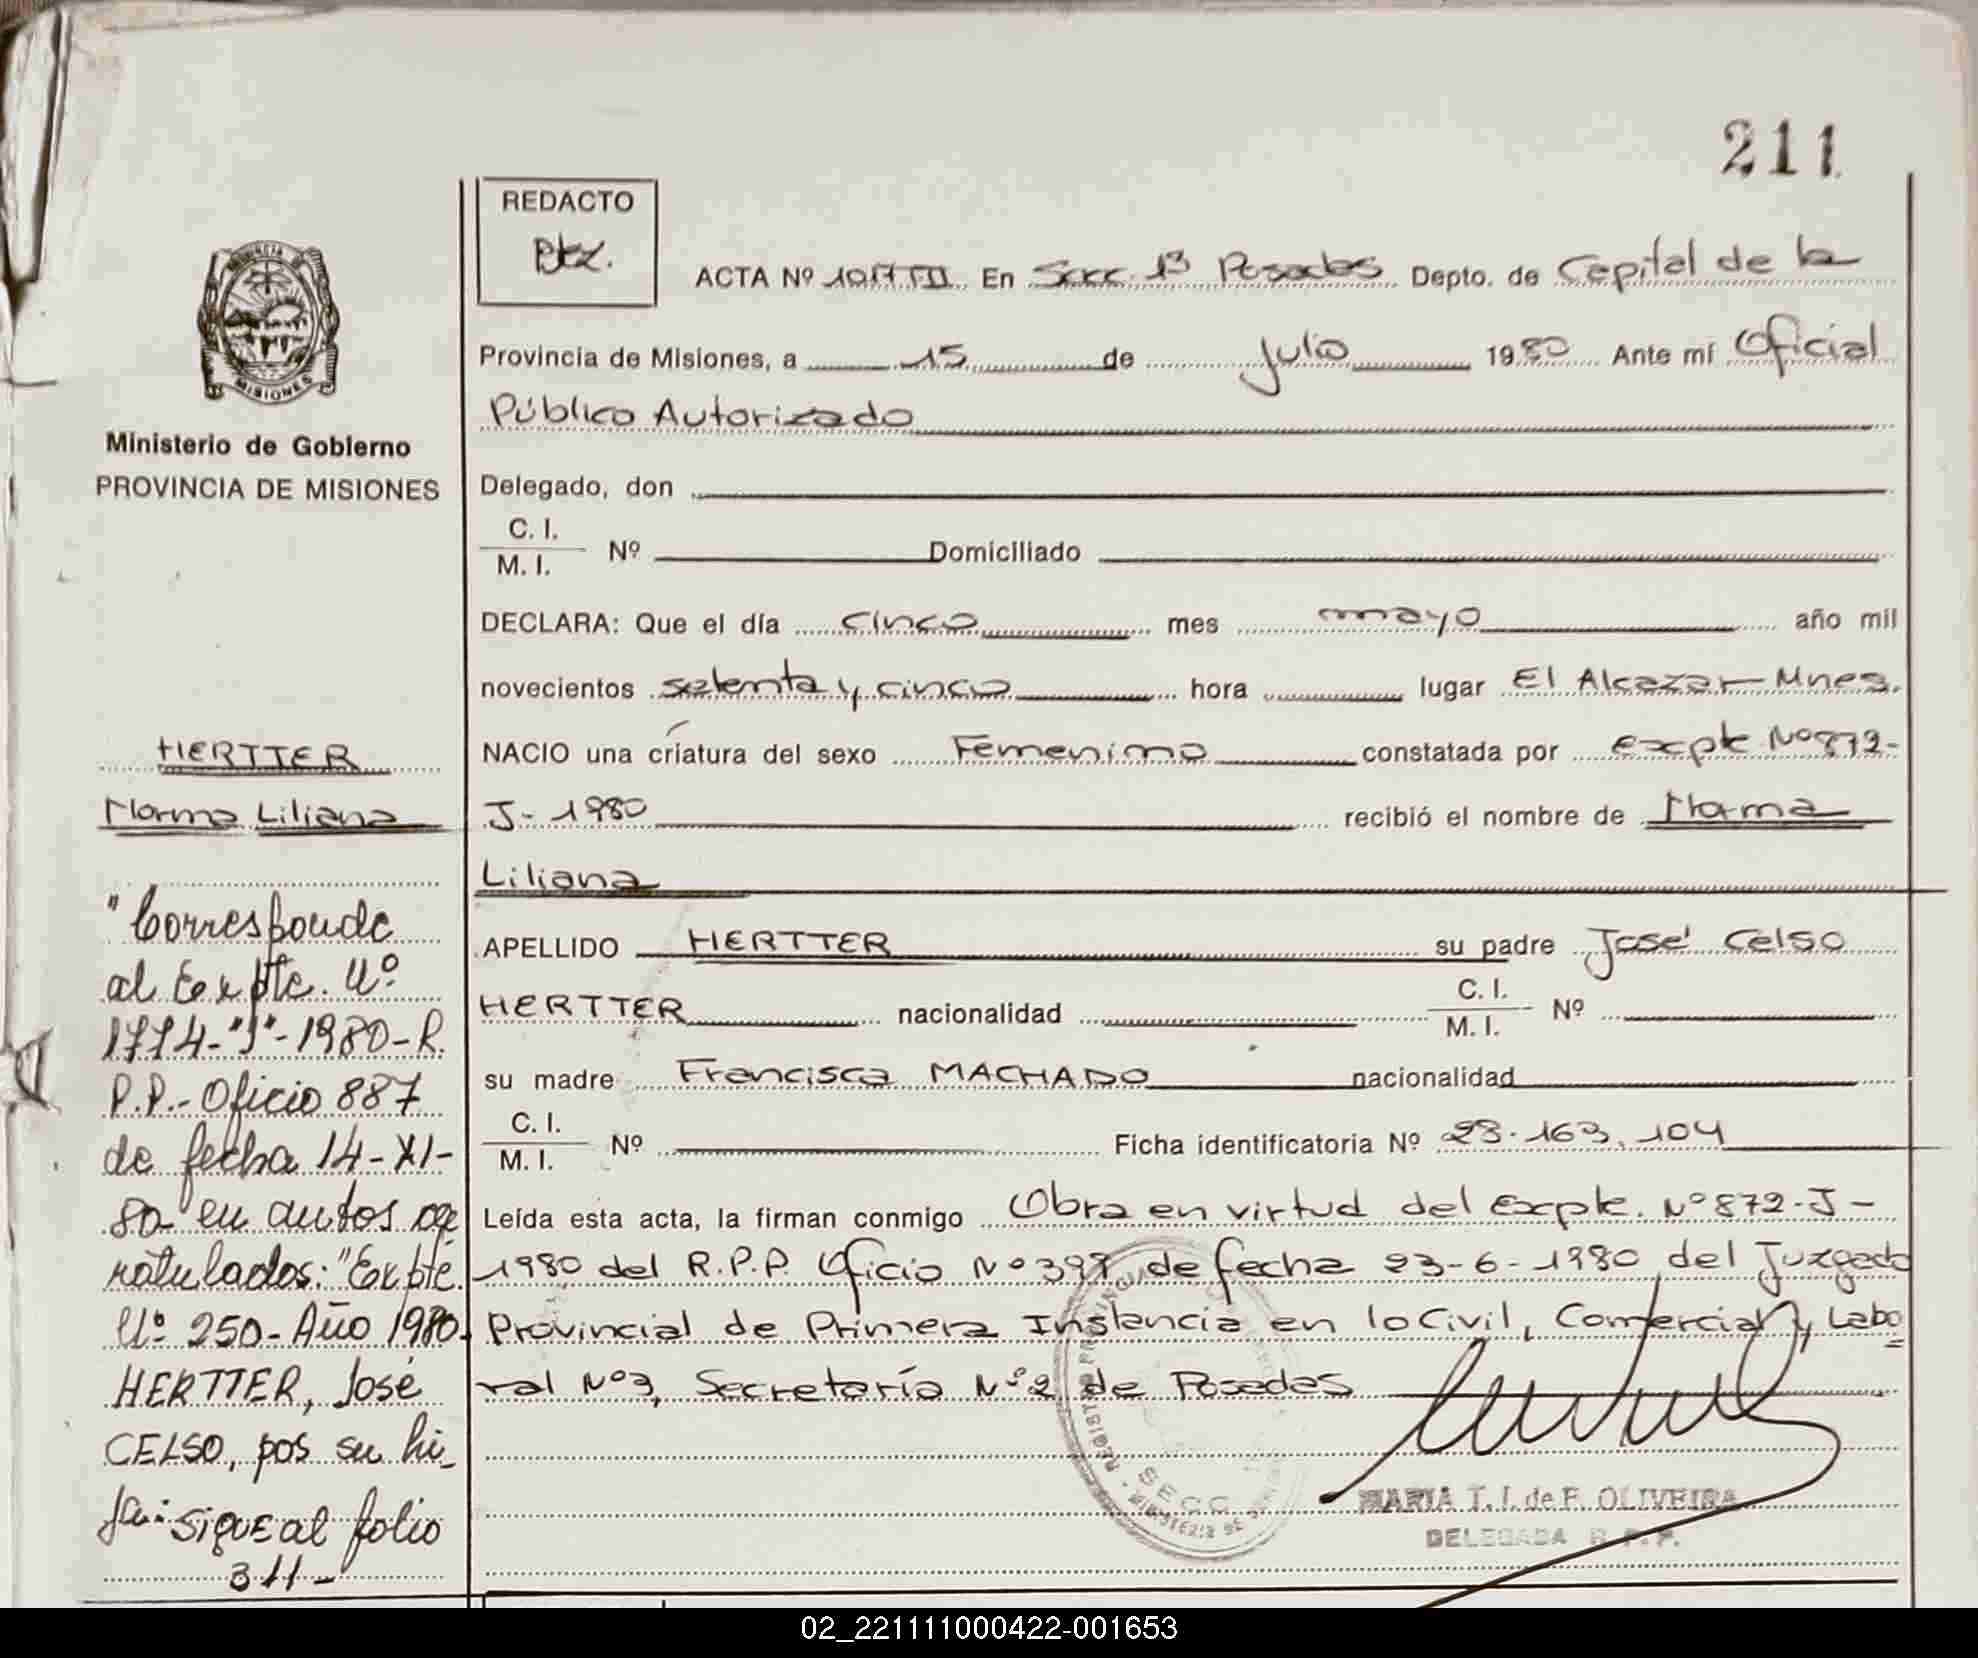 211
REDACTO
ACTA Nº 1017 TII En Secc. 1ª Posadas Depto. de Capital de la
Provincia de Misiones, a 15 de Julio 1980 Ante mí Oficial
Público Autorizado
Delegado, don
C. I.
M. I. Nº Domiciliado
DECLARA: Que el día cinco mes mayo año mil
novecientos setenta y cinco hora lugar El Alcazar-Mnes.
NACIO una criatura del sexo Femenimo constatada por expte Nº 872-
J-1980 recibió el nombre de Norma
Liliana
APELLIDO HERTTER su padre José Celso
HERTTER nacionalidad C. I.
M. I. Nº
su madre Francisca MACHADO nacionalidad
C. I.
M. I. Nº Ficha identificatoria Nº 23.163.104
Leída esta acta, la firman conmigo Obra en virtud del Expte. Nº 872-J-
1980 del R.P.P. Oficio Nº 397 de fecha 23-6-1980 del Juzgado
Provincial de Primera Instancia en lo Civil, Comercial y Labo=
ral Nº 3, Secretaría Nº 2 de Posadas
MARIA T. I. de F. OLIVEIRA
DELEGADA R. P. P.
PROVINCIA DE
MISIONES
Ministerio de Gobierno
PROVINCIA DE MISIONES
HERTTER
Norma Liliana
"Corresponde
al Expte. Nº
1774-"J"-1980-R.
P.P.-Oficio 887
de fecha 14-XI-
80 en autos ca
ratulados: "Expte.
Nº 250-Año 1980-
HERTTER, José
CELSO, pos su hi_
ja: SIGUE al folio
311-
SECC.
02_221111000422-001653